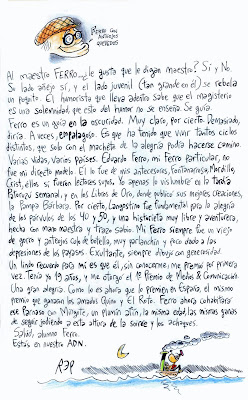 RETRATO CON
ANTEOJOS
QUEVEDOS
Al maestro FERRO... ¿le gusta que le digan maestro? Sí y No.
Su lado añejo sí, y el lado juvenil (tan grande en él) se rebela
un poquito. El humorista que lleva adentro sabe que el magisterio
es una solemnidad, que esto del humor no se enseña. Se guía.
Ferro es un guía en la oscuridad. Muy claro, por cierto. Demasiado,
diría. A veces, empalagoso. Es que ha tenido que vivir tantos ciclos
distintos, que solo con el machete de la alegría podía hacerse camino.
Varias vidas, varios países. Eduardo Ferro, mi Ferro particular, no
fue mi directo modelo. El lo fue de mis antecesores; Fontanarrosa, Mordillo,
Crist, ellos sí fueron lectores suyos. Yo apenas lo vislumbré en la Tardía
Patoruzú semanal, y en los Libros de Oro, donde publicó sus mejores creaciones,
la Pampa Bárbara. Por cierto, Langostino fue fundamental para la alegría
de los párvulos de los 40 y 50, y una historieta muy libre y aventurera,
hecha con mano maestra y trazo sabio. Mi Ferro siempre fue un viejo
de gorro y anteojos culo de botella, muy parlanchín y poco dado a las
depresiones de los payasos. Exultante, siempre dibujó con generosidad.
Un lindo recuerdo para mí es que él, sin conocerme, me premió por primera
vez. Tenía yo 19 años, y me otorgó el 1º Premio de Medios & Comunicación
Una gran alegría. Como lo es ahora que lo premien en España, el mismo
premio que ganaron los amados Quino y El Roto. Ferro ahora cohabitará
ese Parnaso con Mingote, un plumín afín, la misma edad, las mismas ganas
de seguir jodiendo a esta altura de la soirée y los achaques.
Salud, alumno Ferro.
Estás en nuestro ADN.
REP